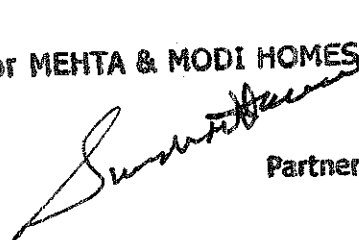 or MEHTA & MODI HOMES
Partner